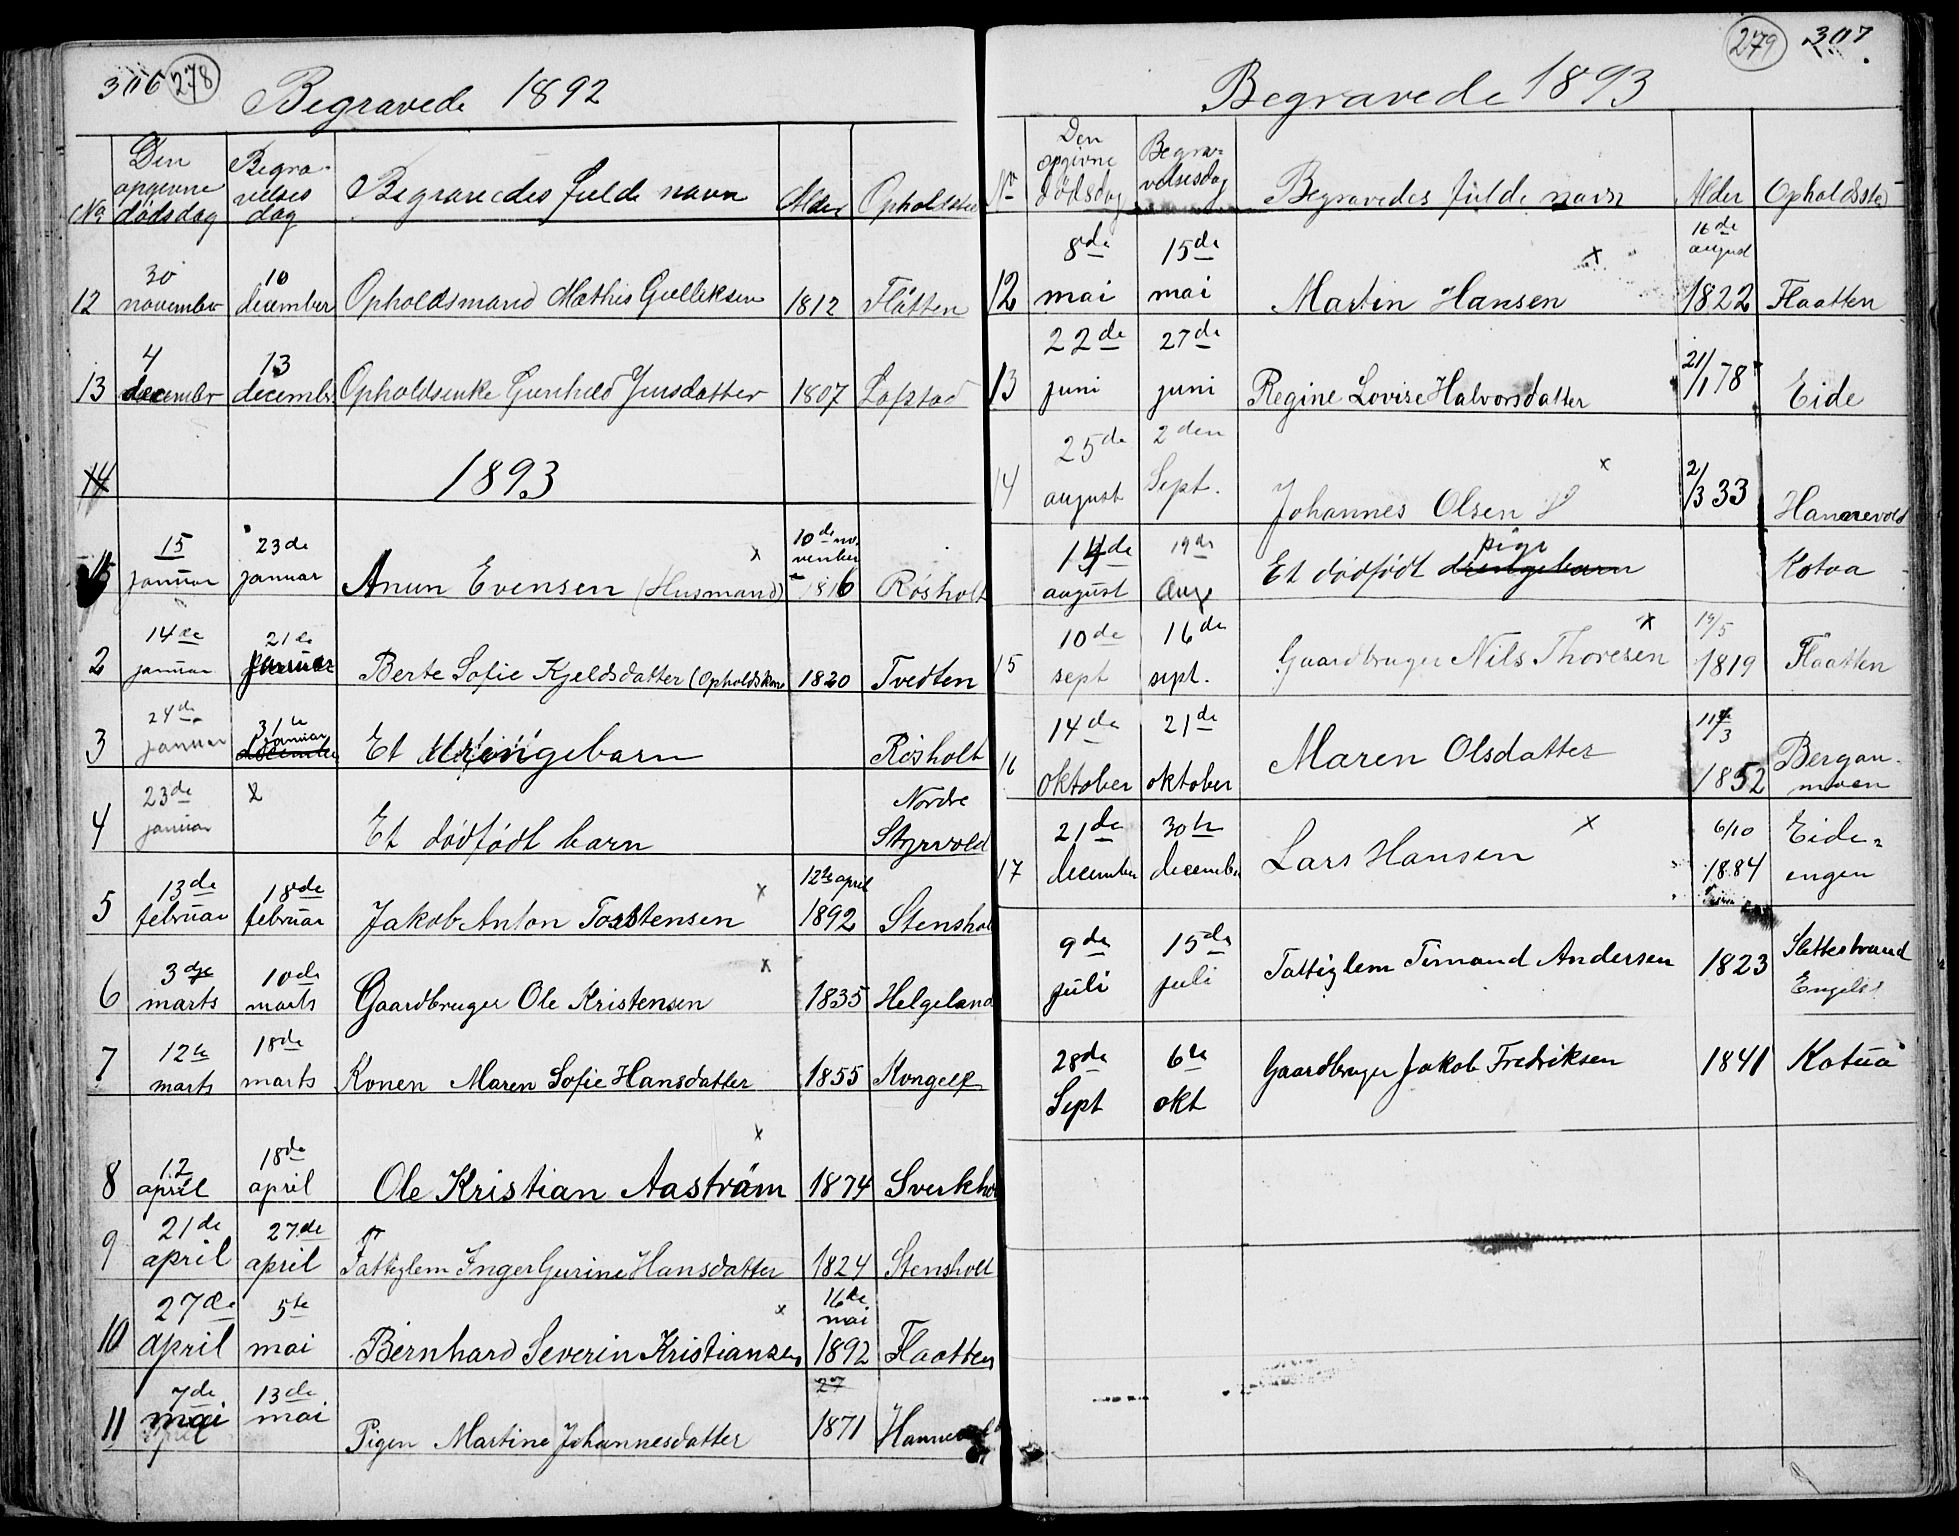 306 278
Begravede 1892
No. Den opgivne dödsdag Begravelses dag Begravedes fulde navn Alder Opholdsted
12 30 november 10 december Opholdsmand Mathis Gulliksen 1812 Flåtten
13 4 december 13 december Opholdsenke Gunhild Jensdatter 1807 Løfstad
14 1893
15 januar 23de januar Anun Evensen (Husmand) x 10de november 1816 Røsholt
2 14de januar 21de januar Berte Sofie Kjeldsdatter (Opholdskone 1820 Tvedten
3 24de januar 31te januar december Et drengebarn Røsholt
4 23de januar x Et dödfödt barn Nordre Styrvold
5 13de februar 18de februar Jakob Anton Torstensen x 12te april 1892 Stensholt
6 3die marts 10de marts Gaardbruger Ole Kristensen x 1835 Helgeland
7 12te marts 18de marts Konen Maren Sofie Hansdatter 1855 Kongelf
8 12 april 18de april Ole Kristian Aaström x 1874 Sverkholt
9 21de april 27de april Fattiglem Inger Gurine Hansdatter 1824 Stensholt
10 27de april 5te mai Bernhard Severin Kristiansen x 16de mai 1892 Flaatten
11 7de mai 13de mai Pigen Martine Johannesdatter 27 1871 Hannevold
279 307
Begravede 1893
No Den opgivne dödsdag Begravelsesdag Begravedes fulde navn Alder Opholdssted
12 8de mai 15de mai Martin Hansen x 16de august 1822 Flaatten
13 22de juni 27de juni Regine Lovise Halvorsdatter 21/1 78 Eide
14 25de august 2den Sept. Johannes Olsen x 2/3 33 Hannevold
14de august 19de Aug Et dödfödt drengebarn pige Kotva
15 10de sept 16de sept. Gaardbruger Nils Thoresen x 19/5 1819 Flaatten
16 14de oktober 21de oktober Maren Olsdatter 11/3 1852 Bergan moen
17 21de december 30te december Lars Hansen x 6/10 1884 Eide= engen
9de juli 15de juli Fattiglem Timand Andersen 1823 Slettestrand
28de Sept 6te okt Gaardbruger Jakob Fredriksen 1841 Kotua